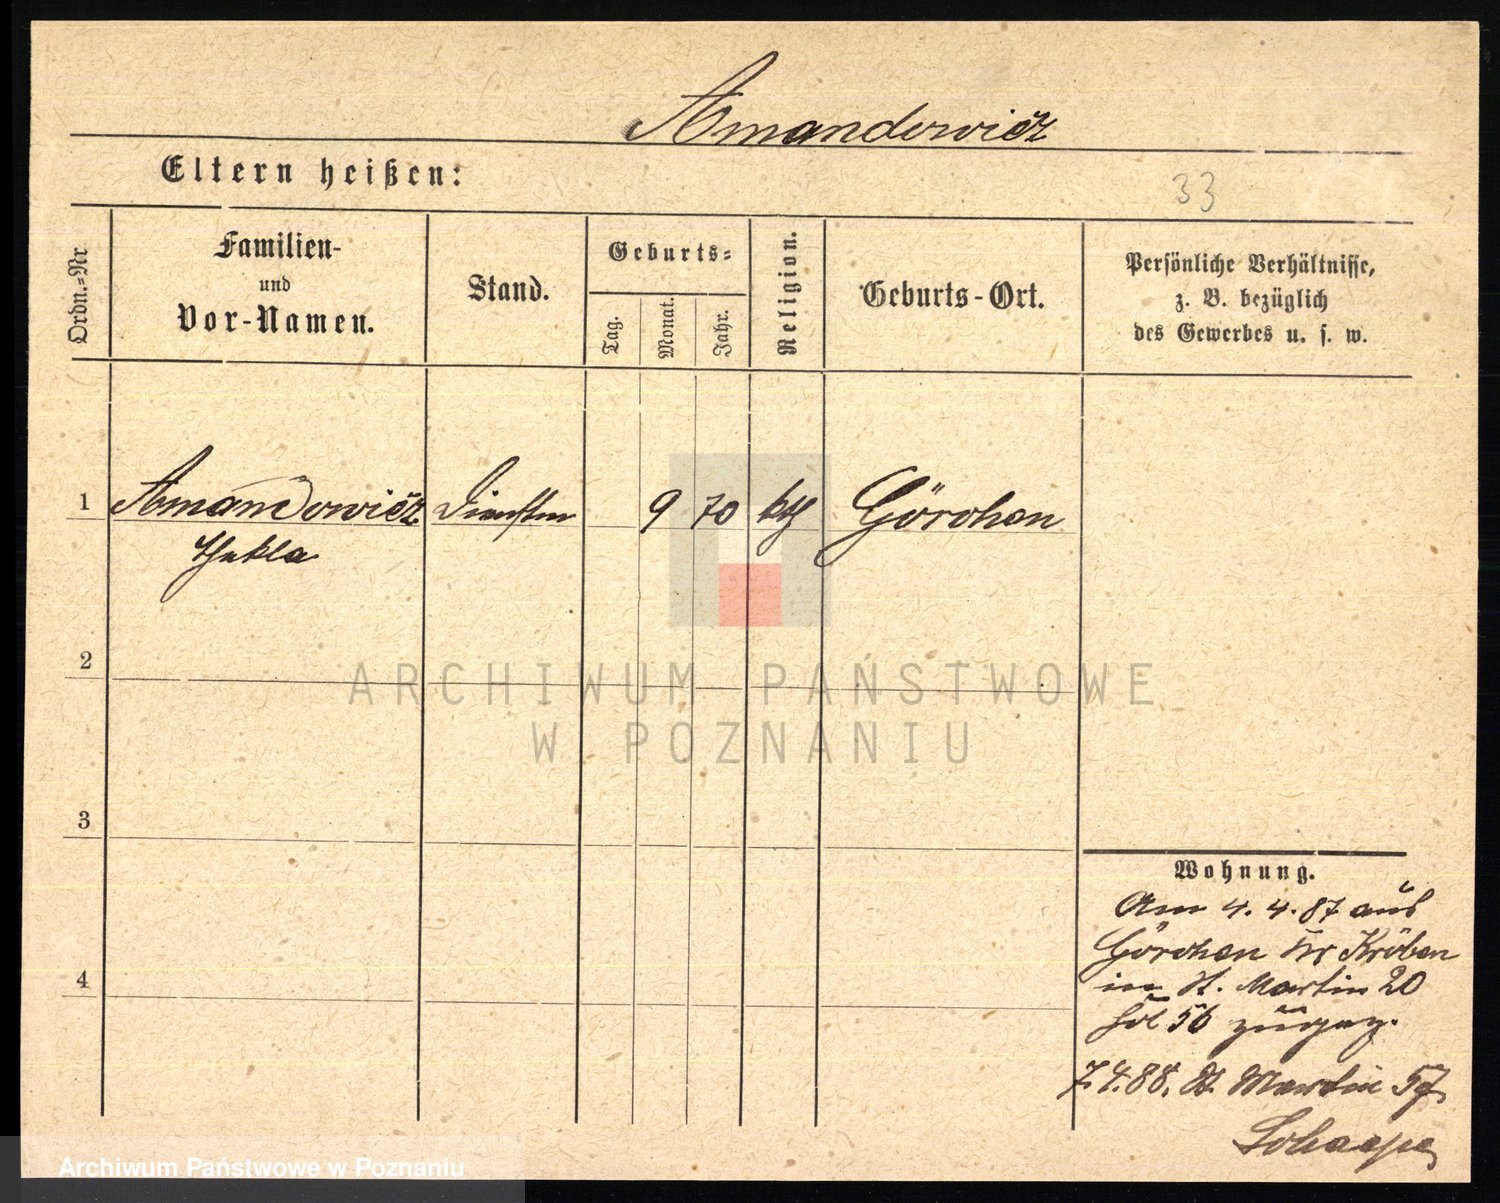 Amandowicz
Eltern heißen:
33
Ordn.-Nr
Familien-
und
Vor-Namen.
Stand.
Geburts-
Tag.
Monat.
Jahr.
Religion.
Geburts-Ort.
Persönliche Verhältnisse,
z. B. bezüglich
des Gewerbes u. s. w.
1 Amandowicz 9 70 kth Görchen
Thekla
2
3
4
Wohnung.
Am 4. 4. 87 aus
Görchen Kr Kröben
in St. Martin 20
56 zugez.
7.4.88. St. Martin 57
ARCHIWUM PAŃSTWOWE
W POZNANIU
Archiwum Państwowe w Poznaniu